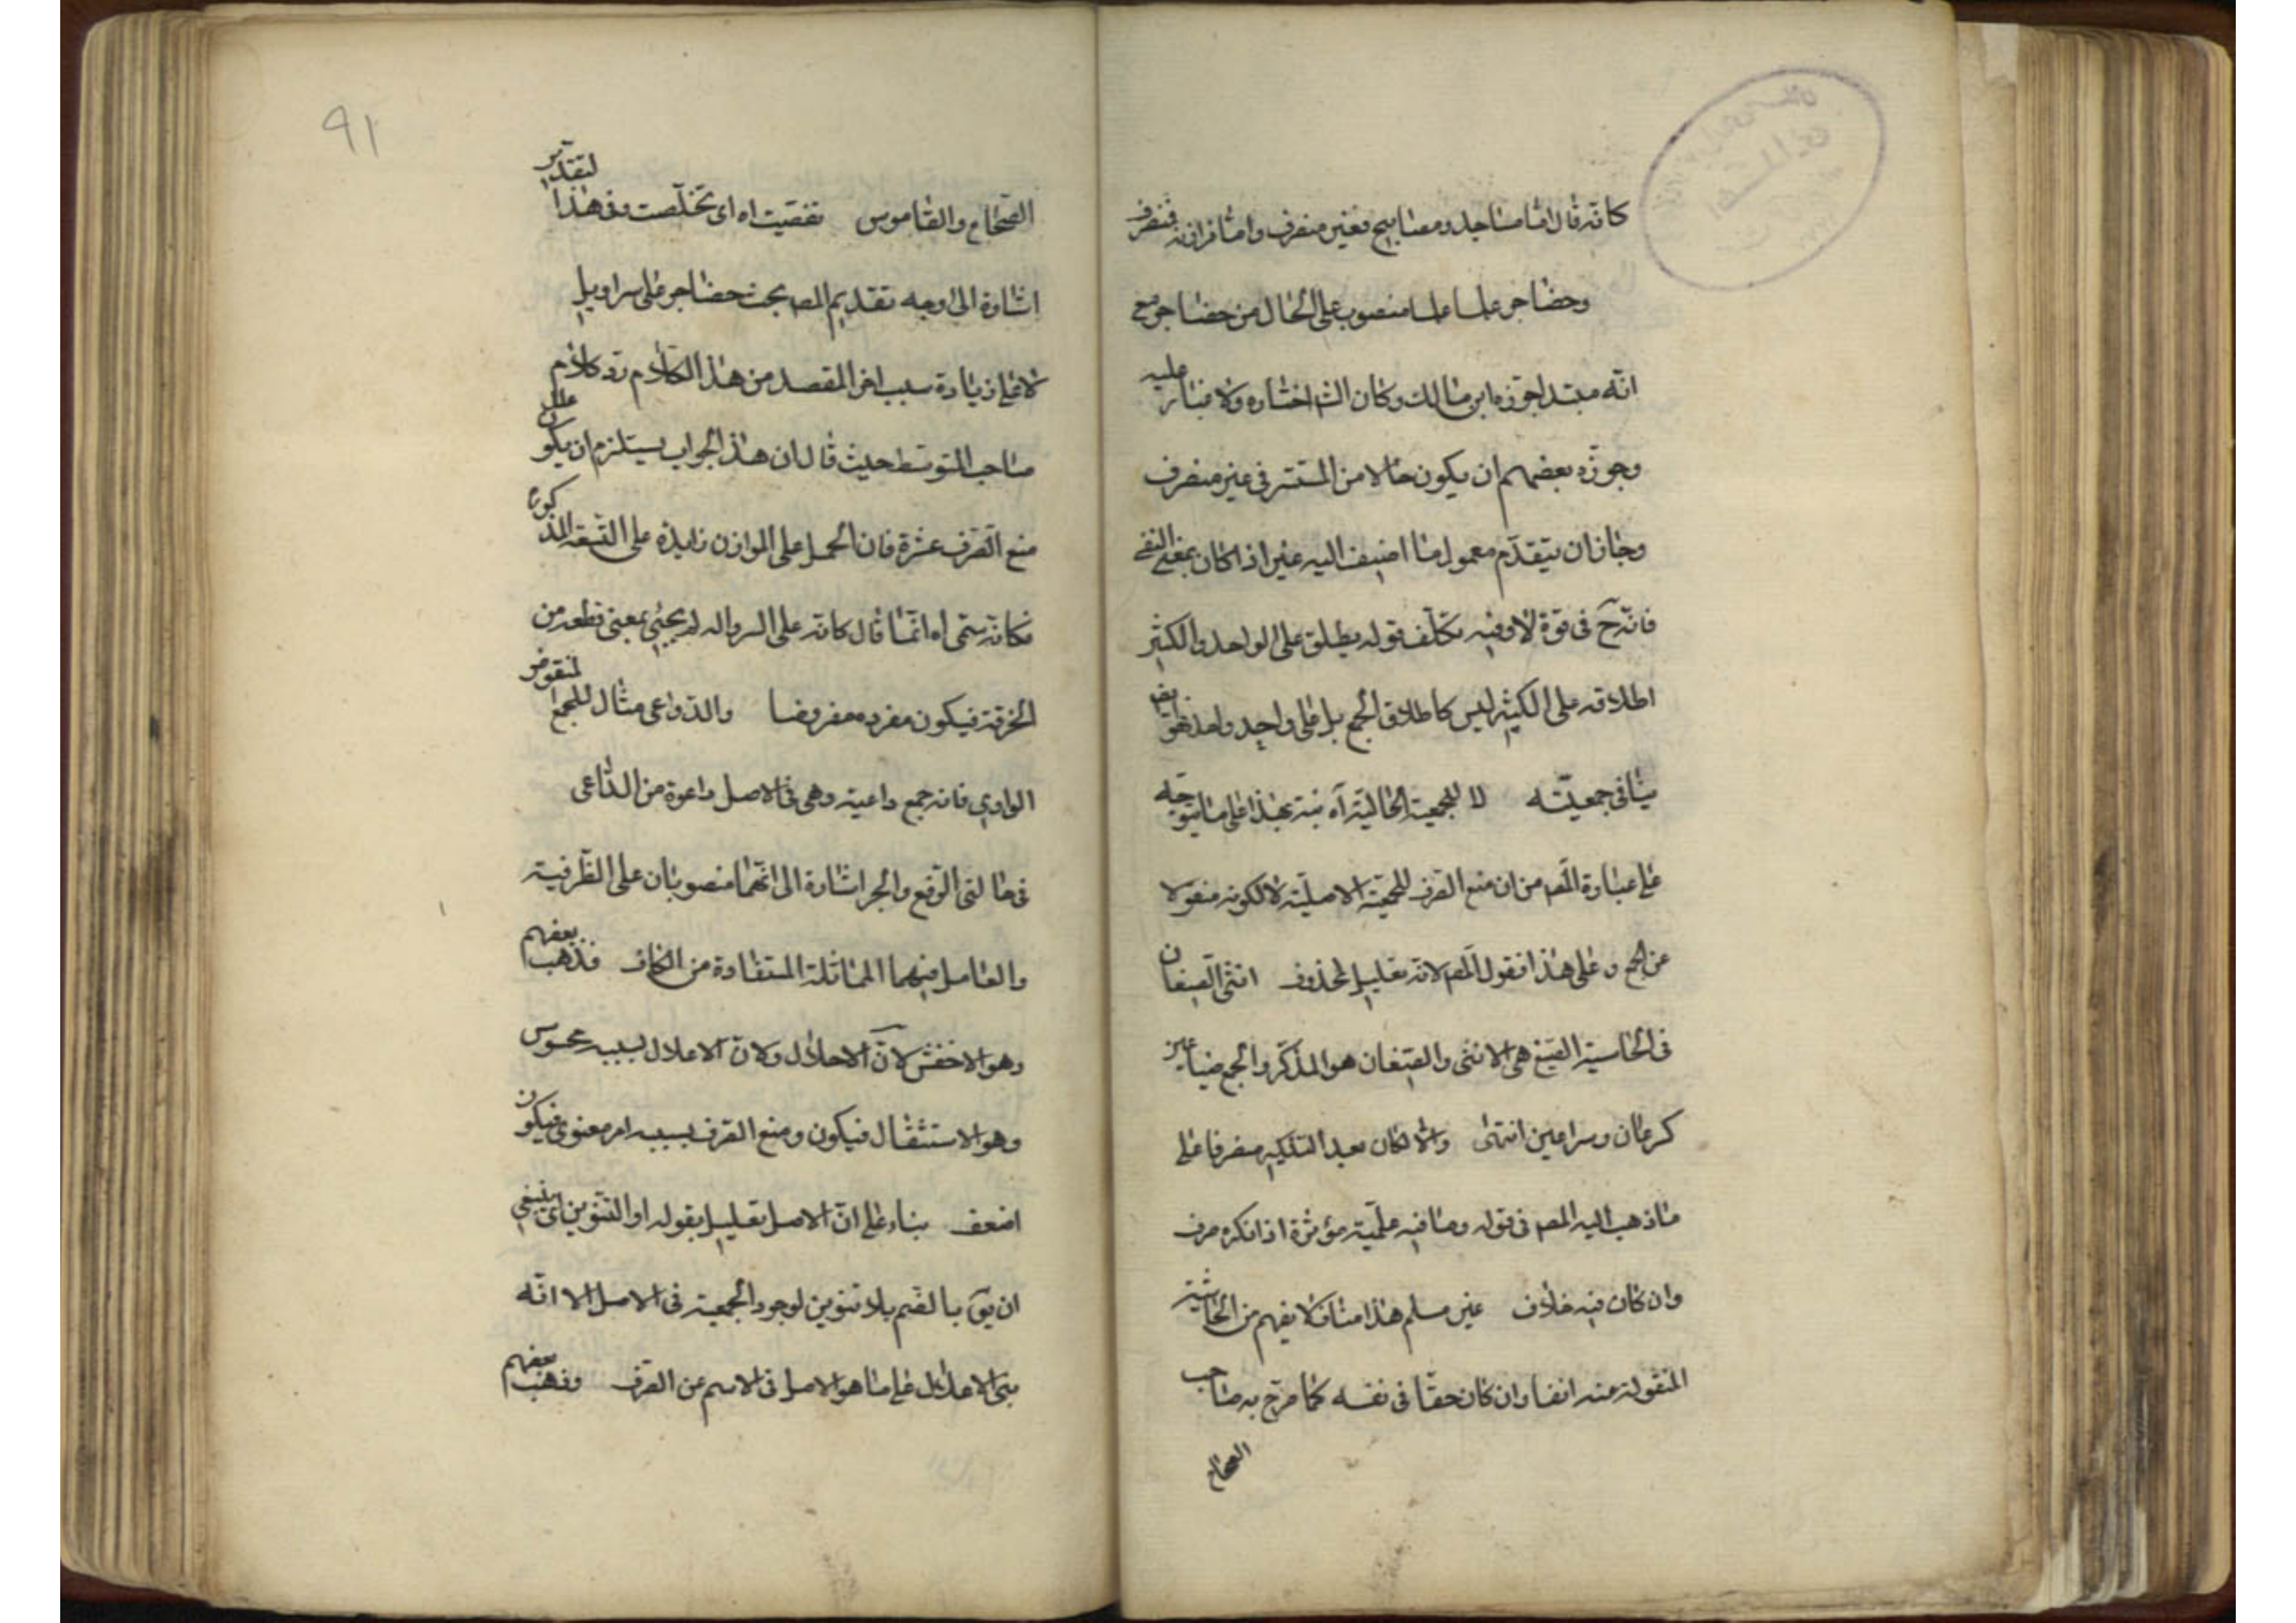 كانّه قال امّا مساجد ومصابيح فغير منصرف وامّا فرازنة فمنصرف
وحضاجر علما علما منصوب على الحال من حضاجر مع
انّه مبتدا جوّزه ابن مالك وكان الش اختاره ولا مبنا عليه
وجوّزه بعضهم ان يكون حالا من المستتر فى غير منصرف
وجاز ان يتقدّم معمول ما اضيف اليه غير اذا كان بمعنى النفى
فانّه ح فى قوّة لا وفيه تكلّف قوله يطلق على الواحد والكثير
اطلاقه على الكثير ليس كاطلاق الجمع بل على واحد واحد فهو
ينافى جمعيّته لا للجمعية الحالية آه نبّه بهذا على ما يتوجّه
على عبارة المص من ان منع الصرف للجمعيّة الاصليّة لا لكونه منقولا
عن الجمع وعلى هذا فقول المص لانّه تعليل لمحذوف انثى الضبعان
فى الحاشية الضبع هى الانثى والضبعان هو المذكّر والجمع ضباعين
كسرحان وسراحين انتهى والّا لكان بعد التنكير منصرفا على
ما ذهب اليه المص فى قوله وما فيه علميّة مؤثرة اذا نكر صرف
وان كان فيه خلاف غير مسلم هذا مناف لا يفهم من الحاشية
المنقولة عنه انفا وان كان حقّا فى نفسه كما صرّح به صاحب
الصحاح
٩١
الصّحاح والقاموس تفصّيت اه اى تخلّصت وفى هذا التقدير
اشارة الى وجه تقديم المص بحث حضاجر على سراويل
لا على زيادة سبب اخر المقصد من هذا الكلام ردّ كلام
صاحب المتوسّط حيث قال ان هذا الجواب يستلزم ان يكون علل
منع الصّرف عشرة فان الحمل على الموازن زايدة على التسعة المذكورة
فكانّه سمّى اه انّما قال كانّه على السروالة لم يجئ بمعنى قطعة من
الخرقة فيكون مفرده مفروضا والدّواعى مثال للجمع المنقوص
الواوى فانّه جمع داعية وهى فى الاصل داعوة من الدّاعى
فى حالتى الرّفع والجر اشارة الى انّهما منصوبان على الظّرفية
والعامل فيهما المماثلة المستفادة من الكاف فذهب بعضهم
وهو الاخفش لانّ الاعلال ولانّ الاعلال لسببه محسوس
وهو الاستثقال فيكون ومنع الصرف لسببه امر معنوى فيكون
اضعف بناء على انّ الاصل تعليل بقوله او التنوين اى ينبغى
ان يق بالضم بلا تنوين لوجود الجمعية فى الاصل الا انّه
بنى الاعلال على ما هو الاصل فى الاسم من الصرف وذهب بعضهم